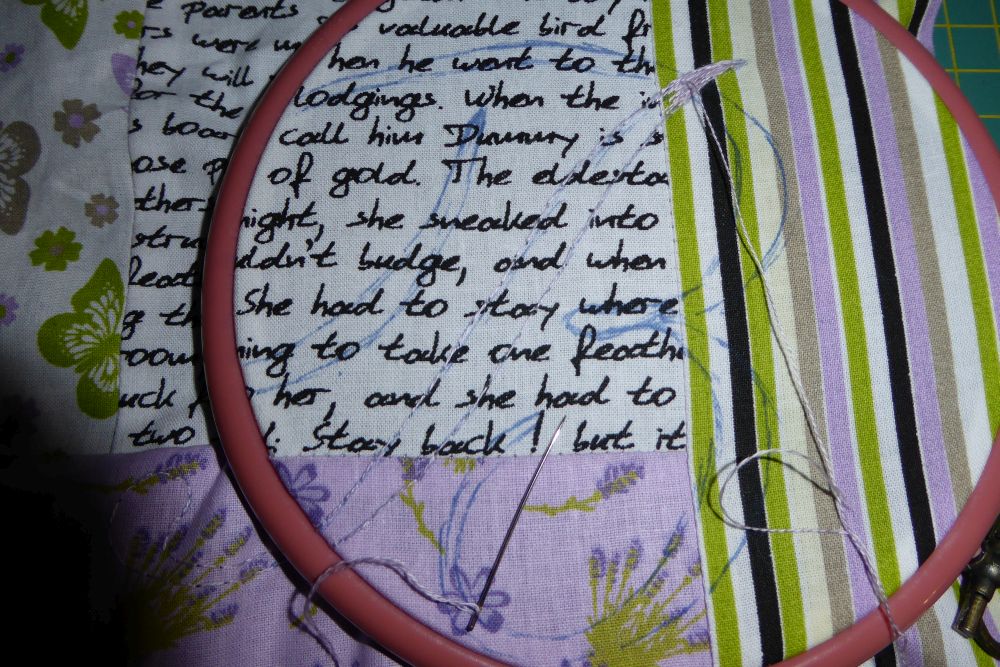 e parents
rs were valuable bird
hey will when he want to the
for the lodgings. When the in
s boar call him Dummry is s
ose p of gold. The eldesta
ther night, she sneaked into
stru uldn't budge, and when
Feath She had to stay where
g th
room ning to take one Feathe
uck her, and she had to
two Stay back! but it